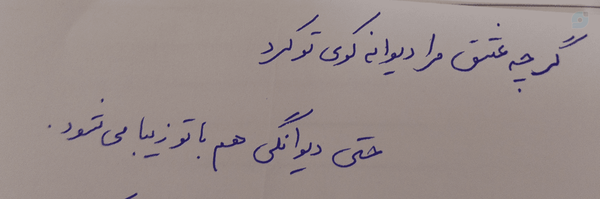 گرچه عشق مرا دیوانه کوی تو کرد
حتی دیوانگی هم با تو زیبا می شود.